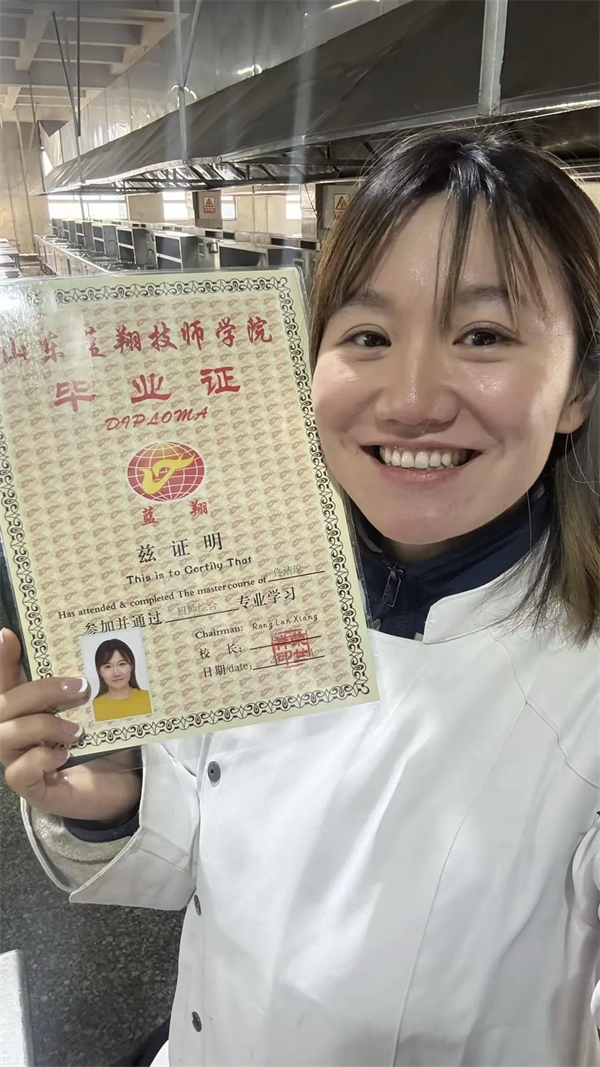 山东蓝翔技师学院
毕业证
DIPLOMA
蓝翔
兹证明
This is to Certify That
Has attended & completed The master course of
参加并通过 厨师综合 专业学习
Chairman: Rong Lan Xiang
校长:
日期/date: